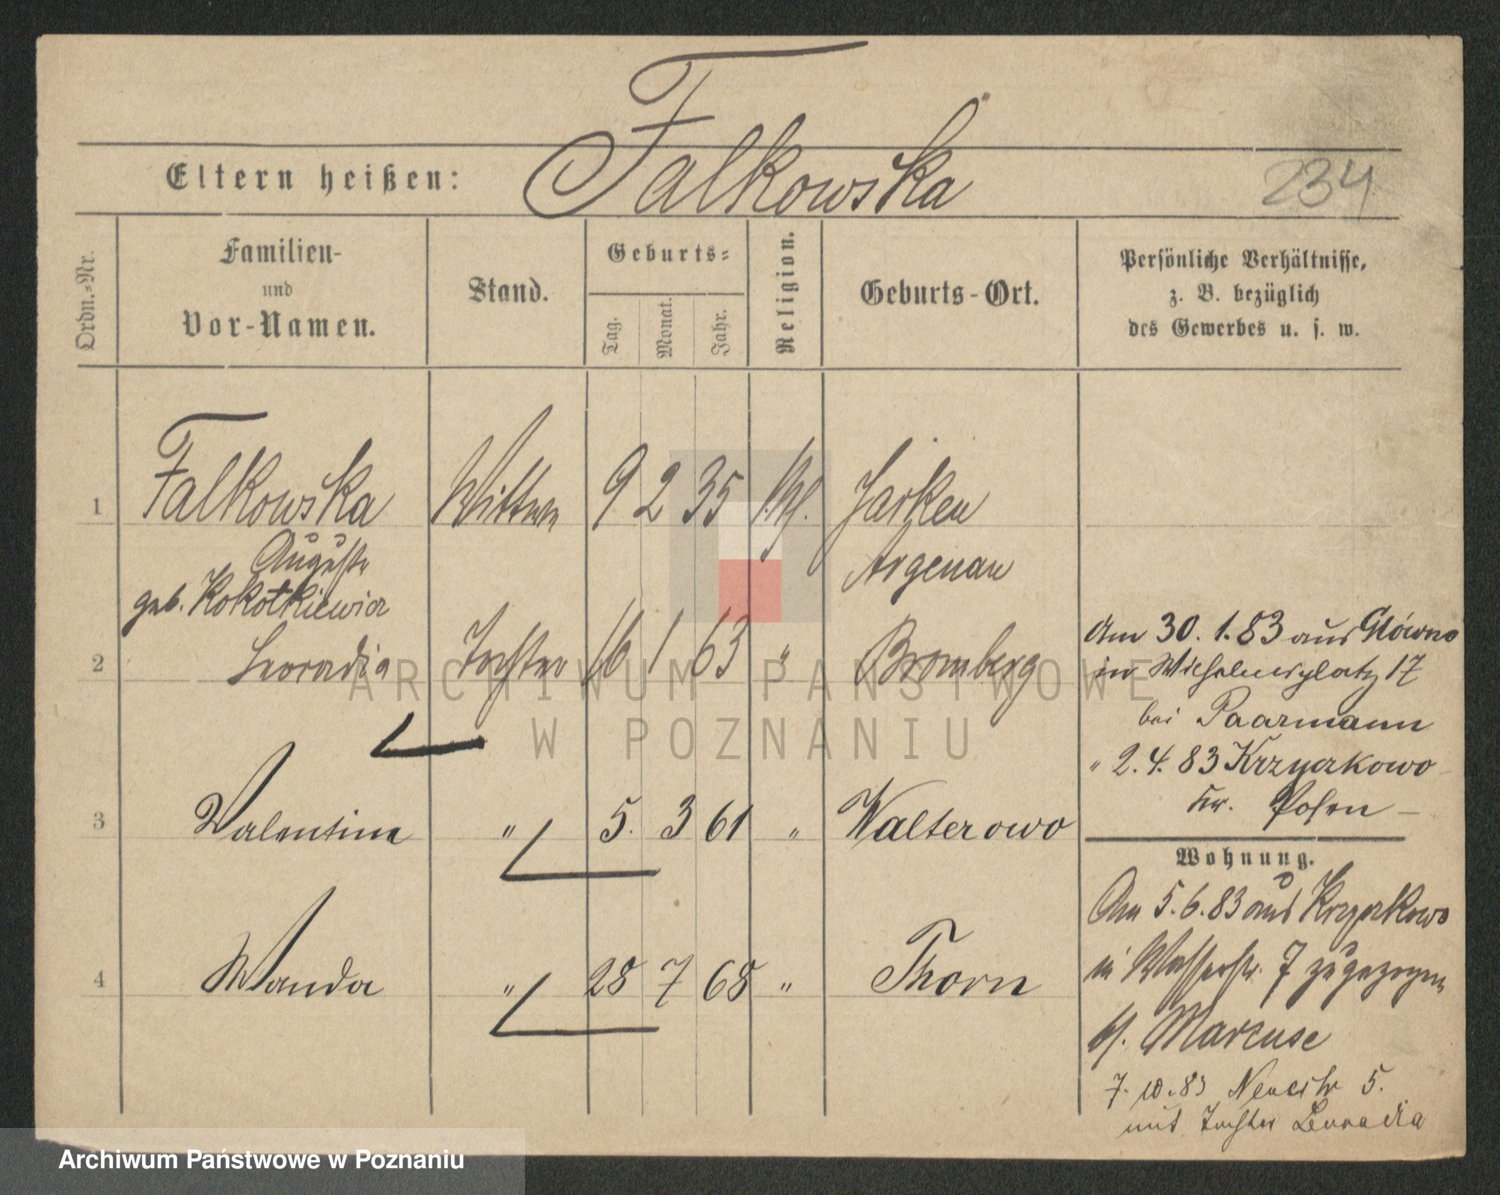 Falkowska
Eltern heißen:
234
Ordn.-Nr.
Familien-
und
Vor-Namen.
Stand.
Geburts-
Tag.
Monat.
Jahr.
Religion.
Geburts-Ort.
Persönliche Verhältnisse,
z. B. bezüglich
des Gewerbes u. s. w.
1 Falkowska Wittwe 9 2 35 Jarken
Auguste Argenau
geb. Kokotkiewicz
2 Leoradia Tochter 16 1 63 " Bromberg
3 Valentine " 5. 3 61 " Walterowo
4 Wanda " 28 7 68 " Thorn
Am 30. 1. 83 aus Główno
in Wilhelmsplatz 17
bei Paarmann
" 2. 4. 83 Krzyzkowo
Kr. Posen —
Wohnung.
Am 5. 6. 83 aus Krzyzkowo
in Wasserstr. 7 zugezogen
b/. Marcuse
7. 10. 83 Neuestr 5.
mit Tochter Leoradia
ARCHIWUM PAŃSTWOWE
W POZNANIU
Archiwum Państwowe w Poznaniu